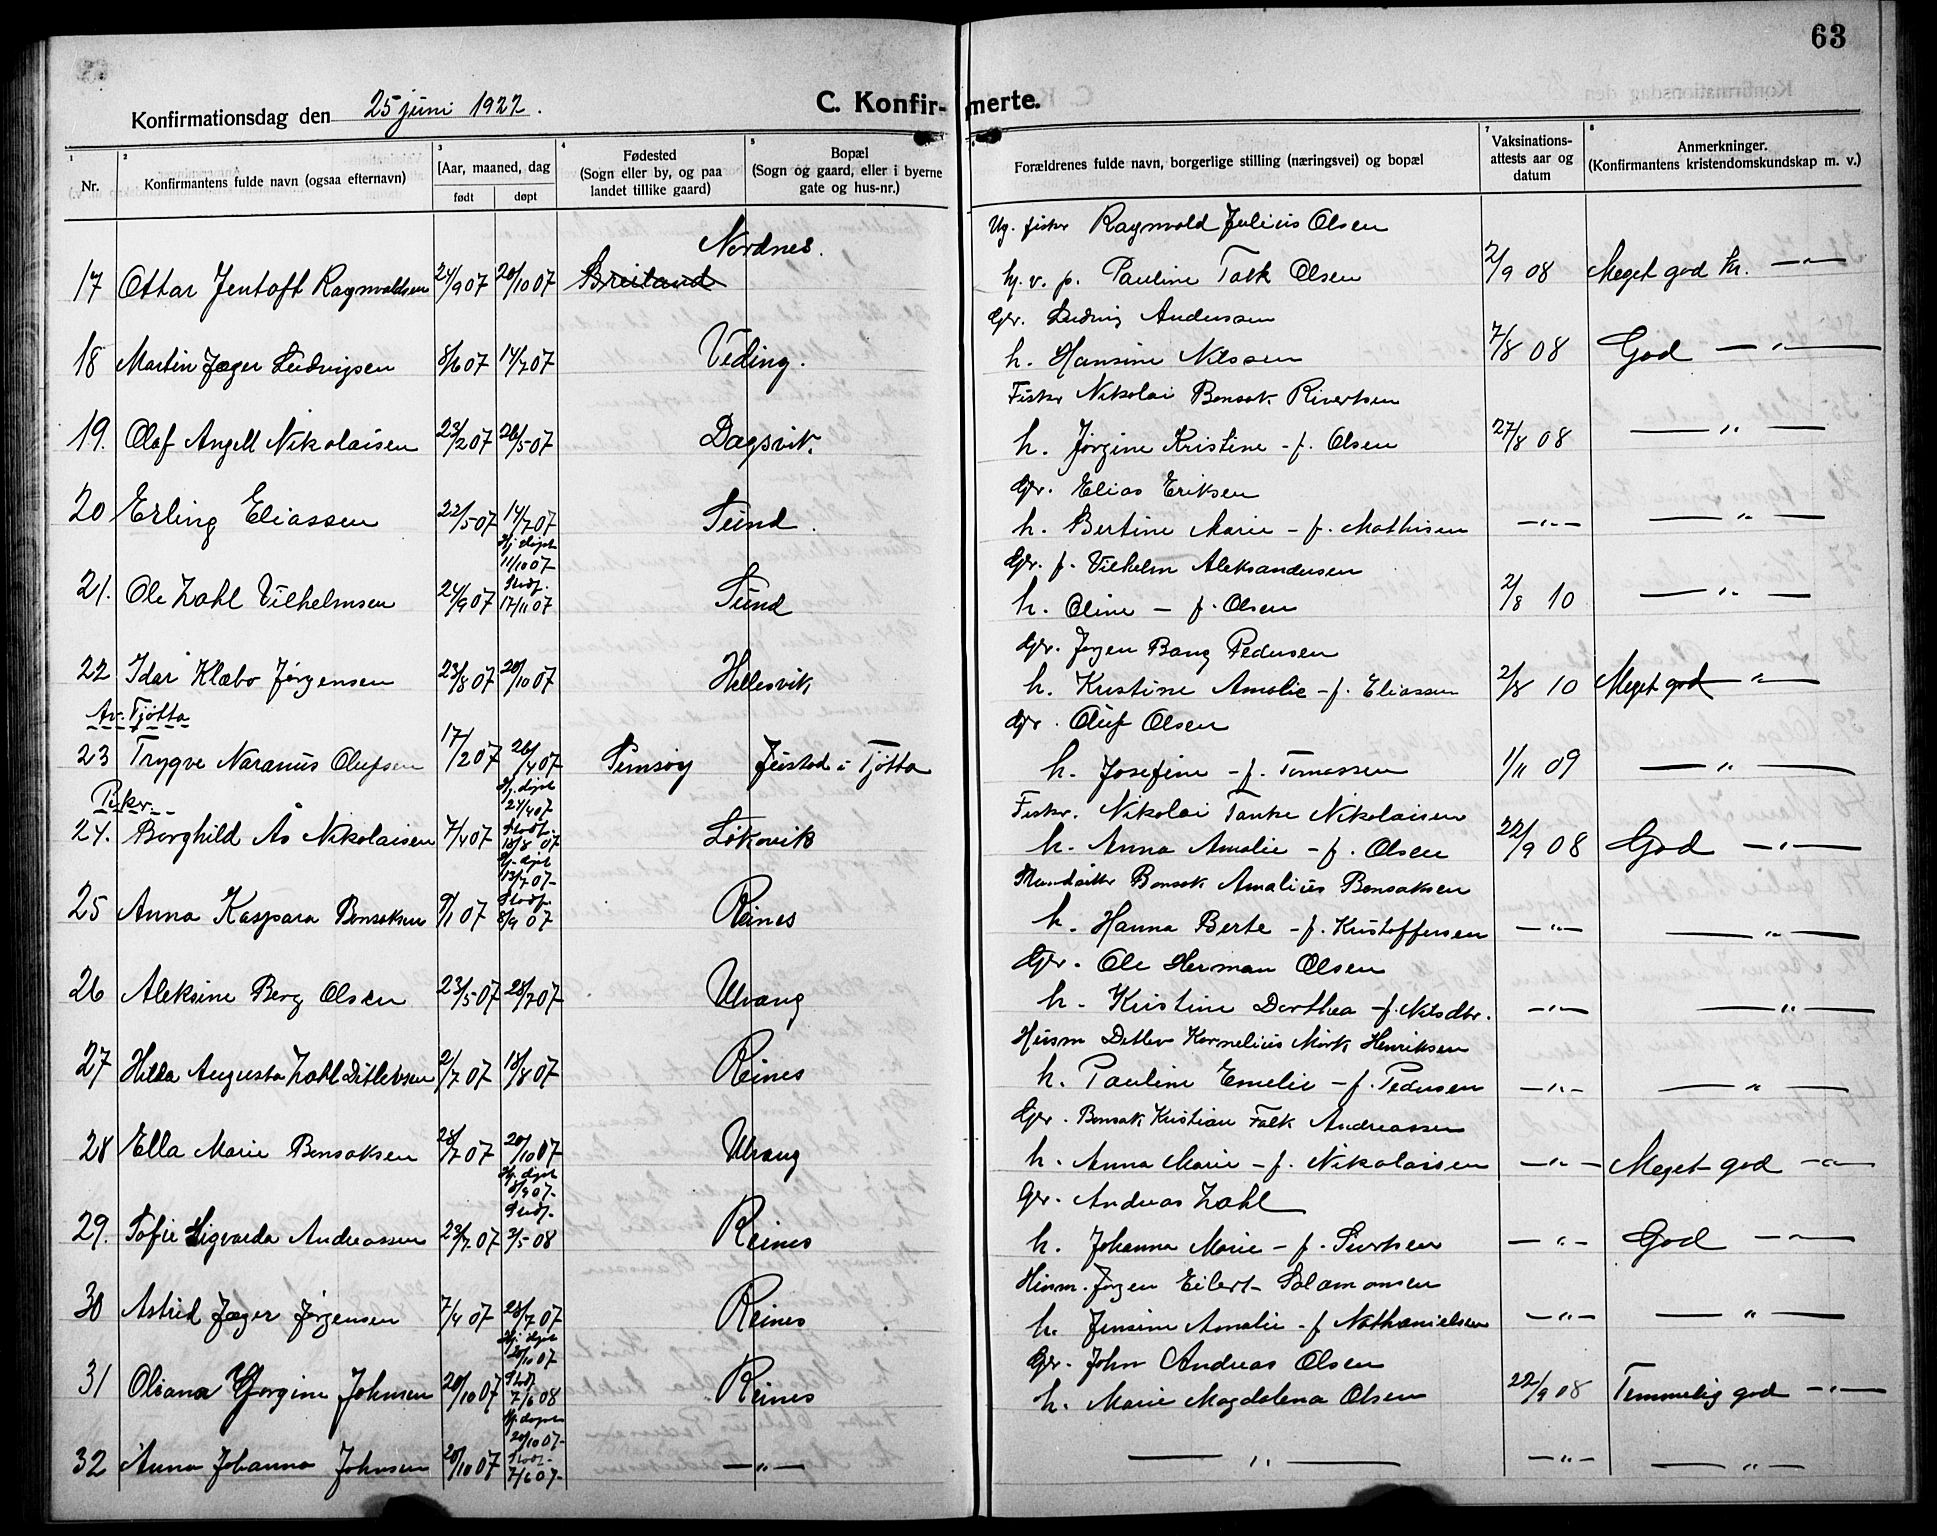 63
Konfirmationsdag den 25 juni 1922.
C. Konfirmerte.
1 Nr.
2 Konfirmantens fulde navn (ogsaa efternavn)
3 Aar, maaned, dag født døpt
4 Fødested (Sogn eller by, og paa landet tillike gaard)
5 Bopæl (Sogn og gaard, eller i byerne gate og hus-nr.)
6 Forældrenes fulde navn, borgerlige stilling (næringsvei) og bopæl
7 Vaksinations-attests aar og datum
8 Anmerkninger. (Konfirmantens kristendomskundskap m. v.)
Ug. fisker Ragnvald Julius Olsen
Nordnes.
17 Ottar Jentoft Ragnvaldsen 24/9 07 20/10 07 Breiland hj. v. p. Pauline Falk Olsen 2/9 08 Meget god kr. — " —
Gbr. Ludvig Anderssen
18 Martin Jæger Ludvigsen 8/6 07 14/7 07 Veding. h. Hansine Nilssen 7/8 08 God — " —
Fisker Nikolai Bensak Rivertsen
19. Olaf Angell Nikolaisen 23/2 07 26/5 07 Dagsvik. h. Jørgine Kristine - f. Olsen 27/8 08 — " —
Gbr. Elias Eriksen
20 Erling Eliassen 22/5 07 14/7 07 Sund. h. Bertine Marie - f. Mathisen — " — — " —
Hj. døpt 11/10 07 Stadf.
Gbr. f. Vilhelm Aleksandersen
21. Ole Zahl Vilhelmsen 24/9 07 17/11 07 Sund h. Oline - f. Olsen 2/8 10 — " —
Gbr. Jørgen Bang Pedersen
22 Idar Klæbo Jørgensen 23/8 07 20/10 07 Hellesvik h. Kristine Amalie - f. Eliassen 2/8 10 Meget god — " —
Av. Tjøtta
Gbr. Oluf Olsen
23 Trygve Naranius Olufsen 17/2 07 26/4 07 Tjøtta h. Josefine - f. Tomassen 1/11 09 — " —
Piker.
Hj. døpt 21/4 07 Stadf.
Fisker. Nikolai Tanke Nikolaisen
24. Borghild Ås Nikolaisen 7/4 07 18/8 07 Løkvik h. Anna Amalie - f. Olsen 22/9 08 God — " —
Hj. døpt 13/7 07 Stadf.
Bensak Amalius Bensaksen
25 Anna Kaspara Bensaksen 9/1 07 8/9 07 Reines h. Hanna Berte - f. Kristoffersen — " — — " —
Gbr. Ole Herman Olsen
26 Aleksine Berg Olsen 23/5 07 28/7 07 Ulvang h. Kristine Dorthea - f. Nilsdtr. — " — — " —
Husm Detlev Kornelius Mørk Henriksen
27 Hilda Augusta Zahl Ditlevsen 2/7 07 18/8 07 Reines h. Pauline Emelie - f. Pedersen — " — — " —
Gbr. Bensak Kristian Falk Andreassen
28 Ella Marie Bensaksen 28/7 07 20/10 07 Ulvang h. Anna Marie - f. Nikolaisen — " — Meget god — " —
Hj. døpt 8/9 07 Stadf.
Gbr. Andreas Zahl
29. Sofie Sigvarda Andreassen 23/7 07 3/5 08 Reines h. Johanna Marie - f. Sivertsen — " — God — " —
Husm. Jørgen Eilert Salamonsen
30 Astrid Jæger Jørgensen 7/4 07 28/7 07 Reines h. Jensine Amalie - f. Nathanielsen — " — — " —
Hj. døpt 20/10 07 Stadf.
Gbr. John Andreas Olsen
31 Oliana Jørgine Johnsen 20/10 07 7/6 08 Reines h. Marie Magdalena Olsen 22/9 08 Temmelig god — " —
Hj. døpt 20/10 07 Stadf.
32 Anna Johanna Johnsen 20/10 07 7/6 07 — " — — " — — " — — " —